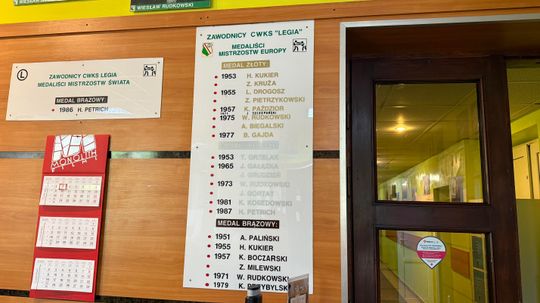 WIESŁAW RUDKOWSKI
ZAWODNICY CWKS LEGIA
MEDALIŚCI MISTRZOSTW ŚWIATA
MEDAL BRĄZOWY:
1986 H. PETRICH
ZAWODNICY CWKS "LEGIA"
MEDALIŚCI
MISTRZOSTW EUROPY
MEDAL ZŁOTY:
1953 H. KUKIER
Z. KRUŻA
1955 L. DROGOSZ
Z. PIETRZYKOWSKI
1957 K. PAŹDZIOR
1975 W. RUDKOWSKI
A. BIEGALSKI
1977 B. GAJDA
1953 T. GRZELAK
1965 J. GAŁĄZKA
J. GRUDZIEŃ
1973 W. RUDKOWSKI
J. GORTAT
1981 K. KOSEDOWSKI
1987 H. PETRICH
MEDAL BRĄZOWY:
1951 A. PALIŃSKI
1955 H. KUKIER
1957 K. BOCZARSKI
Z. MILEWSKI
1971 W. RUDKOWSKI
1979 K. PRZYBYLSKI